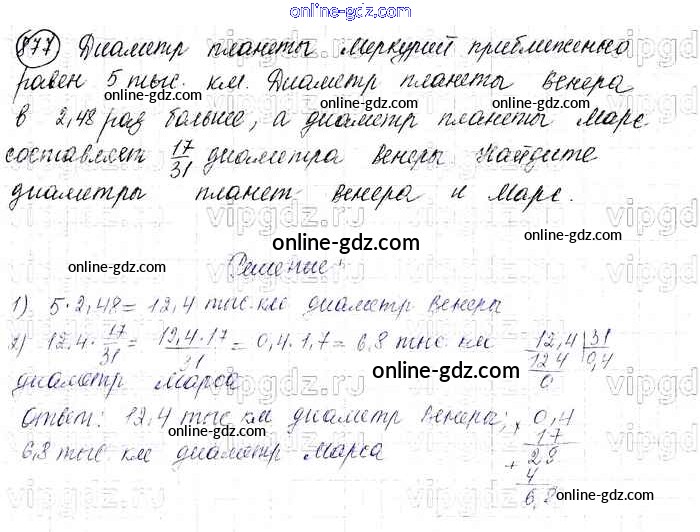 online-gdz.com
877 Диаметр планеты Меркурий приближенно
равен 5 тыс. км. Диаметр планеты Венера
в 2,48 раз больше, а диаметр планеты Марс
составляет 17/31 диаметра Венеры. Найдите
диаметры планет Венера и Марс.
Решение:
1) 5 · 2,48 = 12,4 тыс. км диаметр Венеры
2) 12,4 · 17/31 = 12,4 · 17/31 = 0,4 · 1,7 = 6,8 тыс км
диаметр Марса
12,4 31
12 4 0,4
0
Ответ: 12,4 тыс км диаметр Венеры;
6,8 тыс. км диаметр Марса
× 0,4
17
+ 28
4
6,8
online-gdz.com
online-gdz.com
online-gdz.com
online-gdz.com
online-gdz.com
online-gdz.com
online-gdz.com
online-gdz.com
online-gdz.com
online-gdz.com